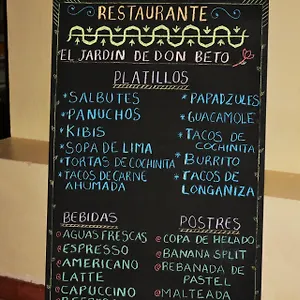 RESTAURANTE
EL JARDIN DE DON BETO
PLATILLOS
*SALBUTES
*PANUCHOS
*KIBIS
*SOPA DE LIMA
*TORTAS DE COCHINITA
*TACOS DE CARNE
AHUMADA
*PAPADZULES
*GUACAMOLE
*TACOS DE
COCHINITA
*BURRITO
*TACOS DE
LONGANIZA
BEBIDAS
AGUAS FRESCAS
ESPRESSO
AMERICANO
LATTE
CAPUCCINO
POSTRES
COPA DE HELADO
BANANA SPLIT
REBANADA DE
PASTEL
MALTEADA